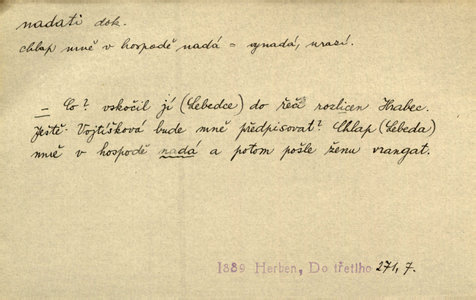 nadati dok.
chlap mně v hospodě nadá = vynadá, urazí.
= Co? vskočil jí (Lebedce) do řeči rozlícen Hrabec.
Ještě Vojtíšková bude mně předpisovat? Chlap (Lebeda)
mně v hospodě nadá a potom pošle ženu vrangat.
1889 Herben, Do třetího 271,7.